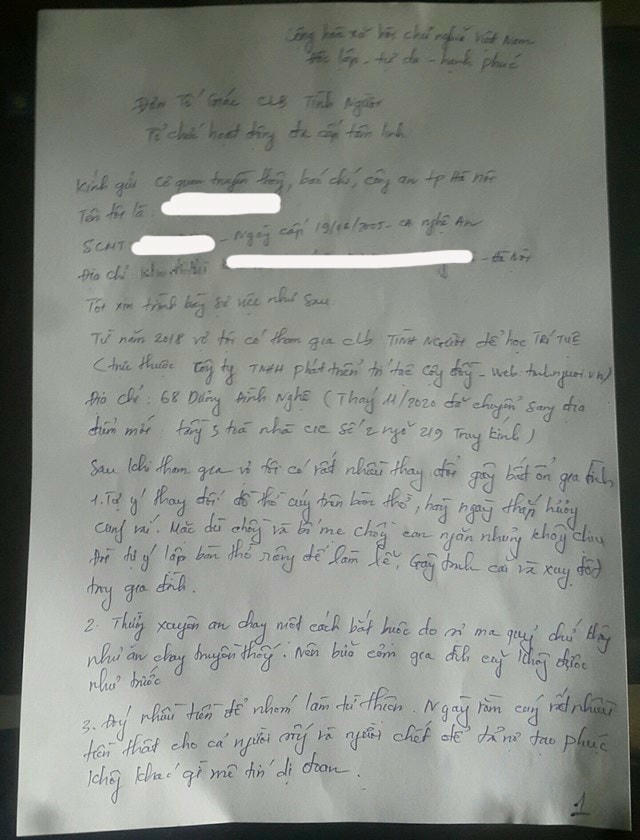 Cộng hòa xã hội chủ nghĩa Việt Nam
Độc lập - tự do - hạnh phúc
Đơn Tố Giác CLB Tình Người
Tổ chức hoạt động đa cấp tâm linh
Kính gửi Cơ quan truyền thông, báo chí, công an tp Hà Nội
Tên tôi là:
SCMT - Ngày cấp 19/ /2005 - CA nghệ An
Địa chỉ - Hà Nội
Tôi xin trình bày sự việc như sau.
Từ năm 2018 vợ tôi có tham gia clb TÌNH NGƯỜI để học TRÍ TUỆ
(trực thuộc Công ty TNHH phát triển trí tuệ cộng đồng - Web: tinhnguoi.vn)
Địa chỉ: 68 Dương Đình Nghệ (Tháng 11/2020 đã chuyển sang địa
điểm mới tầng 5 toà nhà CIC số 2 ngõ 219 Trung kính)
Sau khi tham gia vợ tôi có rất nhiều thay đổi gây bất ổn gia đình
1. Tự ý thay đổi đồ thờ cúng trên bàn thờ, hàng ngày thắp hương
cúng vái. Mặc dù chồng và bố mẹ chồng can ngăn nhưng không chịu
mà tự ý lập bàn thờ riêng để làm lễ, Gây tranh cãi và xung đột
trong gia đình.
2. Thường xuyên ăn chay một cách bắt buộc do sợ ma quỷ chứ không
như ăn chay truyền thống. Nên bữa cơm gia đình cũng không được
như trước
3. nhiều tiền để nhóm làm từ thiện. Ngày rằm cúng rất nhiều
tiền thật cho cả người sống và người chết để trả nợ tạo phúc
không khác gì mê tín dị đoan.
1